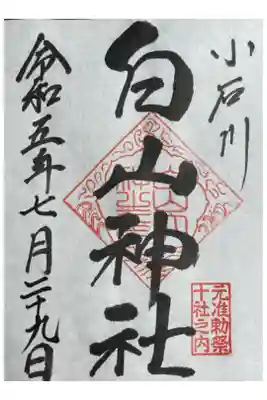 小石川
白山神社
令和五年七月二十九日
元准勅祭
十社之内